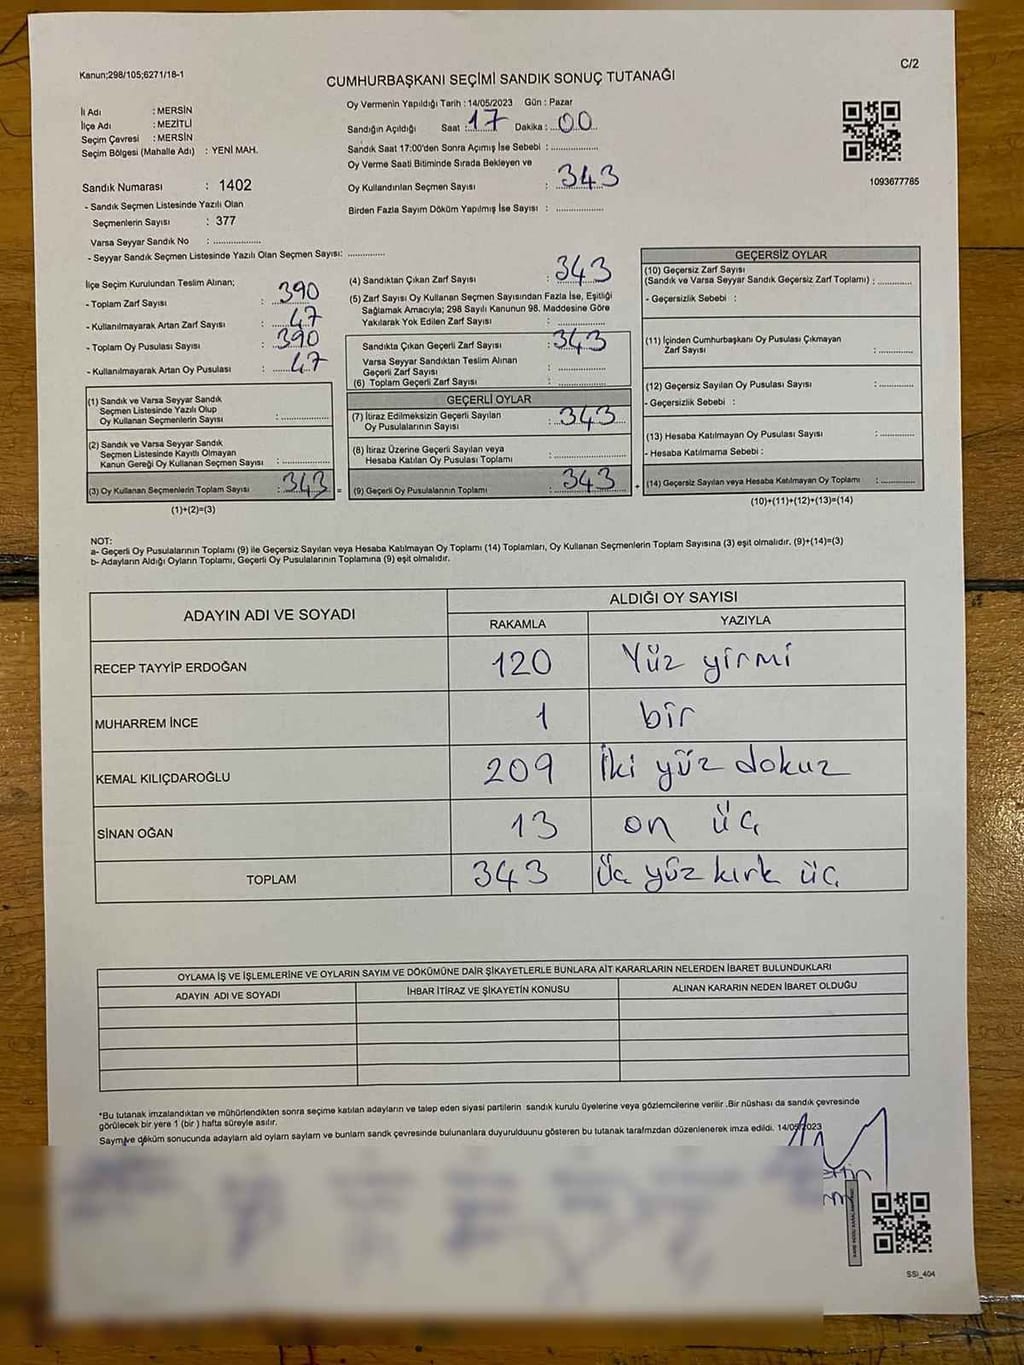 Kanun;298/105;6271/18-1
C/2
CUMHURBAŞKANI SEÇİMİ SANDIK SONUÇ TUTANAĞI
İl Adı : MERSİN
İlçe Adı : MEZİTLİ
Seçim Çevresi : MERSİN
Seçim Bölgesi (Mahalle Adı) : YENİ MAH.
Oy Vermenin Yapıldığı Tarih : 14/05/2023 Gün : Pazar
Sandığın Açıldığı Saat : 17 Dakika : 00
Sandık Saat 17:00'den Sonra Açımış İse Sebebi :
Oy Verme Saati Bitiminde Sırada Bekleyen ve
Oy Kullandırılan Seçmen Sayısı : 343
Birden Fazla Sayım Döküm Yapılmış İse Sayısı :
1093677785
Sandık Numarası : 1402
- Sandık Seçmen Listesinde Yazılı Olan
Seçmenlerin Sayısı : 377
Varsa Seyyar Sandık No :
- Seyyar Sandık Seçmen Listesinde Yazılı Olan Seçmen Sayısı:
İlçe Seçim Kurulundan Teslim Alınan;
- Toplam Zarf Sayısı : 390
- Kullanılmayarak Artan Zarf Sayısı : 47
- Toplam Oy Pusulası Sayısı : 390
- Kullanılmayarak Artan Oy Pusulası : 47
(1) Sandık ve Varsa Seyyar Sandık
Seçmen Listesinde Yazılı Olup
Oy Kullanan Seçmenlerin Sayısı :
(2) Sandık ve Varsa Seyyar Sandık
Seçmen Listesinde Kayıtlı Olmayan
Kanun Gereği Oy Kullanan Seçmen Sayısı :
(3) Oy Kullanan Seçmenlerin Toplam Sayısı : 343 =
(1)+(2)=(3)
(4) Sandıktan Çıkan Zarf Sayısı : 343
(5) Zarf Sayısı Oy Kullanan Seçmen Sayısından Fazla İse, Eşitliği
Sağlamak Amacıyla; 298 Sayılı Kanunun 98. Maddesine Göre
Yakılarak Yok Edilen Zarf Sayısı :
Sandıkta Çıkan Geçerli Zarf Sayısı : 343
Varsa Seyyar Sandıktan Teslim Alınan
Geçerli Zarf Sayısı :
(6) Toplam Geçerli Zarf Sayısı :
GEÇERLİ OYLAR
(7) İtiraz Edilmeksizin Geçerli Sayılan
Oy Pusulalarının Sayısı : 343
(8) İtiraz Üzerine Geçerli Sayılan veya
Hesaba Katılan Oy Pusulası Toplamı :
(9) Geçerli Oy Pusulalarının Toplamı : 343 +
GEÇERSİZ OYLAR
(10) Geçersiz Zarf Sayısı
(Sandık ve Varsa Seyyar Sandık Geçersiz Zarf Toplamı) :
- Geçersizlik Sebebi :
(11) İçinden Cumhurbaşkanı Oy Pusulası Çıkmayan
Zarf Sayısı :
(12) Geçersiz Sayılan Oy Pusulası Sayısı :
- Geçersizlik Sebebi :
(13) Hesaba Katılmayan Oy Pusulası Sayısı :
- Hesaba Katılmama Sebebi :
(14) Geçersiz Sayılan veya Hesaba Katılmayan Oy Toplamı :
(10)+(11)+(12)+(13)=(14)
NOT:
a- Geçerli Oy Pusulalarının Toplamı (9) ile Geçersiz Sayılan veya Hesaba Katılmayan Oy Toplamı (14) Toplamları, Oy Kullanan Seçmenlerin Toplam Sayısına (3) eşit olmalıdır. (9)+(14)=(3)
b- Adayların Aldığı Oyların Toplamı, Geçerli Oy Pusulalarının Toplamına (9) eşit olmalıdır.
ADAYIN ADI VE SOYADI ALDIĞI OY SAYISI
RAKAMLA YAZIYLA
RECEP TAYYİP ERDOĞAN 120 Yüz yirmi
MUHARREM İNCE 1 bir
KEMAL KILIÇDAROĞLU 209 İki yüz dokuz
SİNAN OĞAN 13 on üç
TOPLAM 343 Üç yüz kırk üç
OYLAMA İŞ VE İŞLEMLERİNE VE OYLARIN SAYIM VE DÖKÜMÜNE DAİR ŞİKAYETLERLE BUNLARA AİT KARARLARIN NELERDEN İBARET BULUNDUKLARI
ADAYIN ADI VE SOYADI İHBAR İTİRAZ VE ŞİKAYETİN KONUSU ALINAN KARARIN NEDEN İBARET OLDUĞU
*Bu tutanak imzalandıktan ve mühürlendikten sonra seçime katılan adayların ve talep eden siyasi partilerin sandık kurulu üyelerine veya gözlemcilerine verilir .Bir nüshası da sandık çevresinde
görülecek bir yere 1 (bir ) hafta süreyle asılır.
Sayım ve döküm sonucunda adayların ald oyların sayıları ve bunların sandk çevresinde bulunanlara duyurulduunu gösteren bu tutanak tarafmzdan düzenlenerek imza edildi. 14/05/2023
SSİ_404